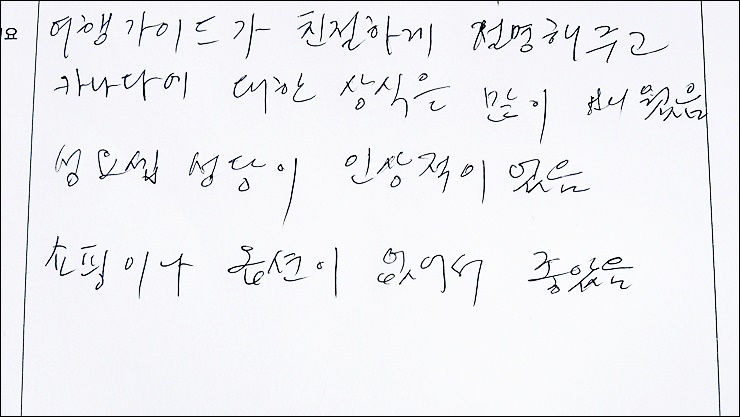 요
여행가이드가 친절하게 설명해주고
카나다에 대한 상식은 많이 배웠음
성요셉 성당이 인상적이 었음
쇼핑이나 옵션이 없어서 좋았음